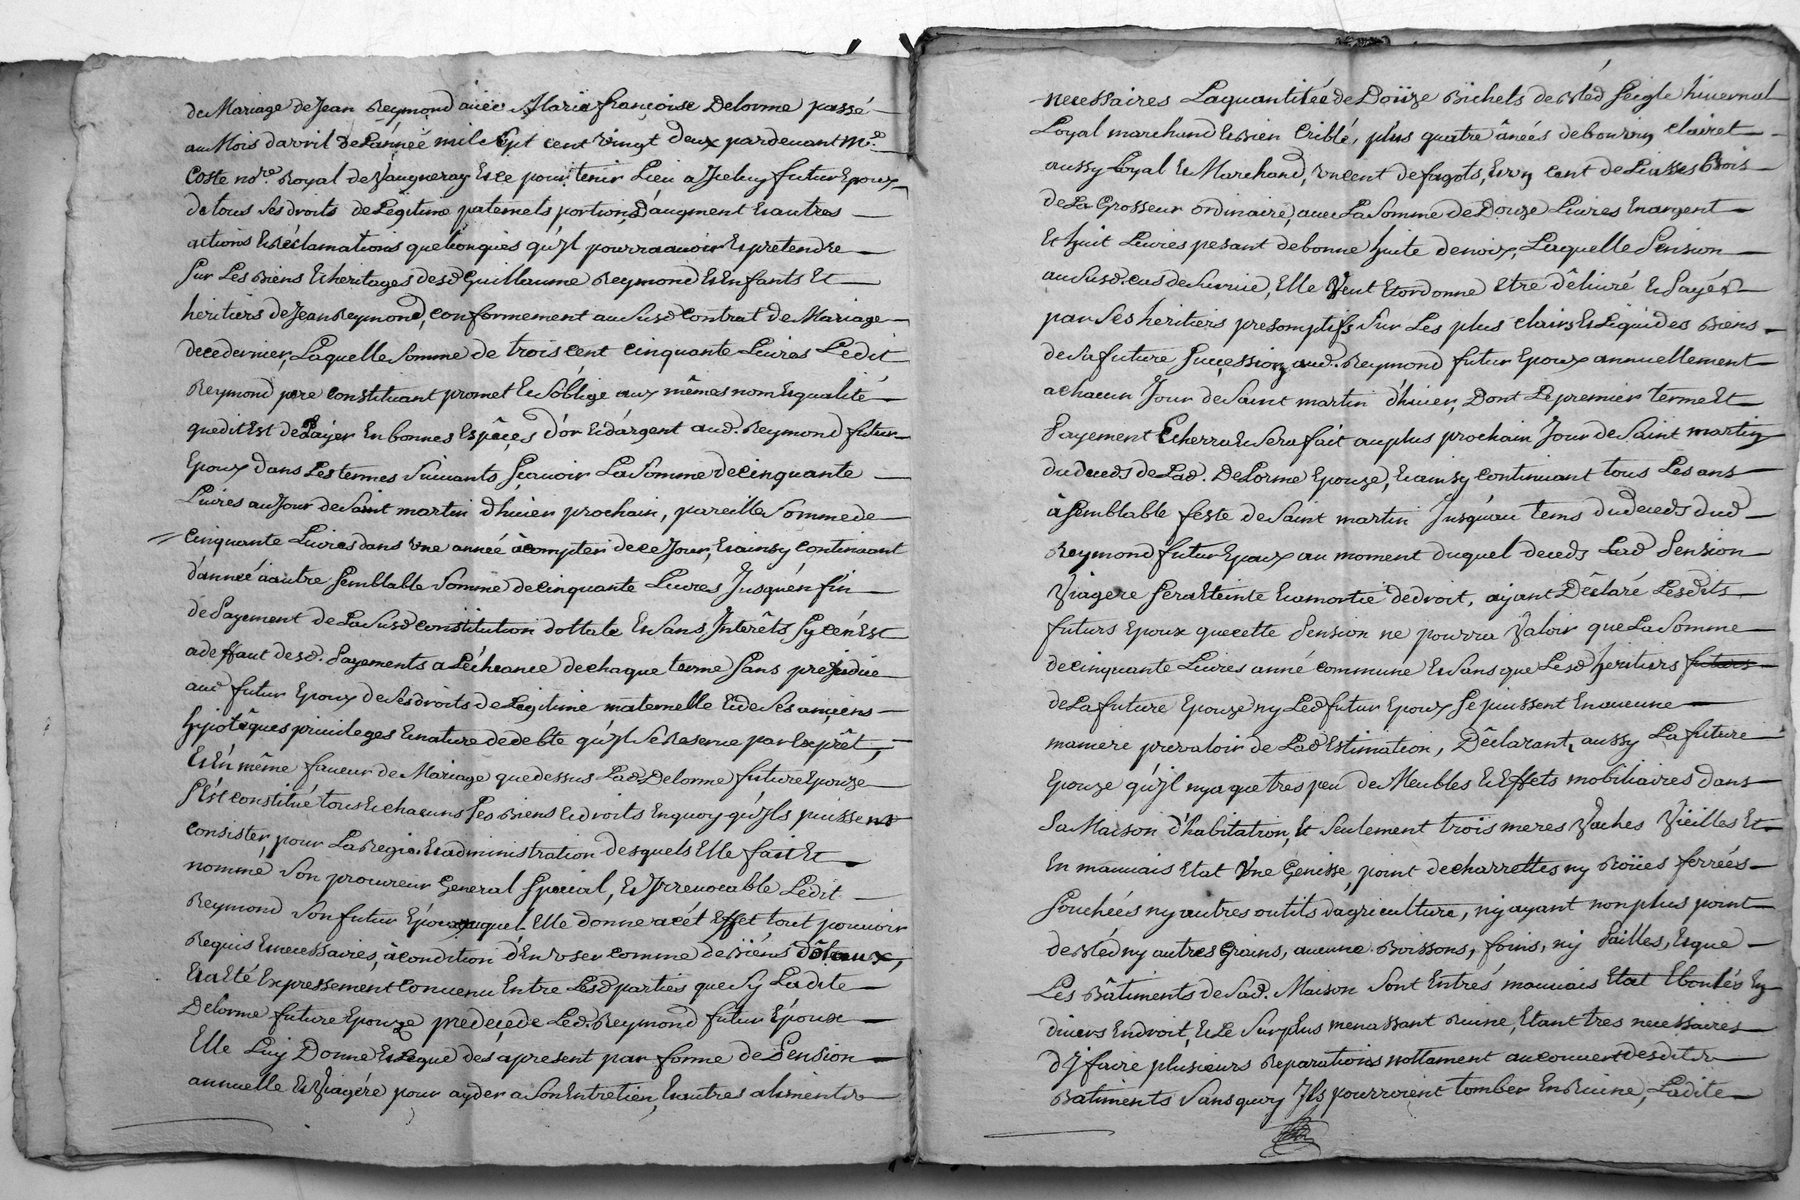 de Mariage de Jean Reymond avec Maria françoise Delorme passé
au Mois davril de L'année mil sept cent vingt deux pardevant Me.
Coste nore. Royal de Vaugneray Et ce pour tenir Lieu a Iceluy futur Epoux
de tous ses droits de Légitime paternels, portions d'augment Et autres
actions Et réclamations quelconques qu'jl pourra avoir Et prétendre
sur Les Biens Et heritages desd Guillaume Reymond Et Enfants Et
heritiers de Jean Reymond, conformement au susd Contrat de Mariage
de ce dernier, Laquelle somme de trois cent cinquante Livres Ledit
Reymond pere constituant promet Et s'oblige aux mêmes nom Et qualité
que dit Est de Payer En bonnes Espêces d'or Et d'argent aud. Reymond futur
Epoux dans Les termes suivants sçavoir La somme de cinquante
Livres au Jour de saint martin d'hiver prochain, pareille somme de
cinquante Livres dans une année à compter de ce Jour, Et ainsy continuant
d'année à autre semblable somme de cinquante Livres Jusqu'en fin
de Payement de La susd constitution dottale Et sans Interêts sy ce n'Est
a deffaut desd. Payements a L'échéance de chaque terme sans prejudice
aud futur Epoux de ses droits de Légitime maternelle Et de ses anciens
hypotêques privileges Et nature de debte qu'jl se Reserve par Exprêt,
Et En même faveur de Mariage que dessus Lad. Delorme future Epouze
s'Est constitué tous Et chacuns ses Biens Et droits En quoy qu'jls puissent
consister, pour La Régie Et administration desquels Elle fait Et
nomme son procureur General Special, Et Irrevocable Ledit
Reymond son futur Epoux auquel Elle donne a cét Effet tout pouvoir
Requis Et necessaires, à condition d'En user comme de Biens dôtaux,
Et a Eté Expressement convenu Entre Lesd parties que sy Ladite
Delorme future Epouze predeçede Led. Reymond futur Epoux
Elle Luy Donne Et Legue des apresent par forme de Pension
annuelle Et Viagére pour ayder a son Entretien, Et autres aliments
necessaires La quantitée de Doüze Bichets de Bléd seigle hivernal
Loyal marchand Et Bien criblé, plus quatre ânées de bon vin clairet
aussy Loyal Et Marchand, un cent de fagots, Et un cent de Liasses Bois
de La Grosseur ordinaire, avec La somme de Douze Livres En argent
Et huit Livres pesant de bonne huile de noix, Laquelle Pension
au susd. cas de survie, Elle Veut Et ordonne Etre délivré Et Payér
par ses heritiers presomptifs sur Les plus clairs Et Liquides Biens
de sa future succession aud. Reymond futur Epoux annuellement
a chacun Jour de saint martin d'hiver, Dont Le premier terme Et
Payement Echerra Et sera fait au plus prochain Jour de saint martin
du deceds de Lad. Delorme Epouze, Et ainsy continuant tous Les ans
à semblable feste de saint martin Jusqu'au tems du deceds dud
Reymond futur Epoux au moment duquel deceds Lad Pension
Viagere sera Eteinte Et amortie de droit, ayant Déclaré Lesdits
futurs Epoux que cette Pension ne pourra Valoir que La somme
de cinquante Livres anné commune Et sans que Lesd heritiers futurs
de La future Epouze ny Led futur Epoux se puissent En aucune
maniere prevaloir de Lad Estimation, Déclarant, aussy La future
Epouze qu'jl n'y a que tres peu de Meubles Et Effets mobiliaires dans
sa Maison d'habitation, Et seulement trois meres Vaches Vieilles Et
En mauvais Etat Une Genisse, point de charrettes ny Roües ferrées
ny autres outils d'agriculture, n'y ayant non plus point
de Bléd ny autres Grains, aucune Boissons, foins, ny Pailles, Et que
Les Bâtiments de sad. Maison sont En trés mauvais Etat Eboulés En
divers Endroit, Et Le surplus menassant Ruine, Etant tres necessaires
d'y faire plusieurs Reparations nottament au couvert desdits
Batiments sans quoy Ils pourroient tomber En Ruine, Ladite